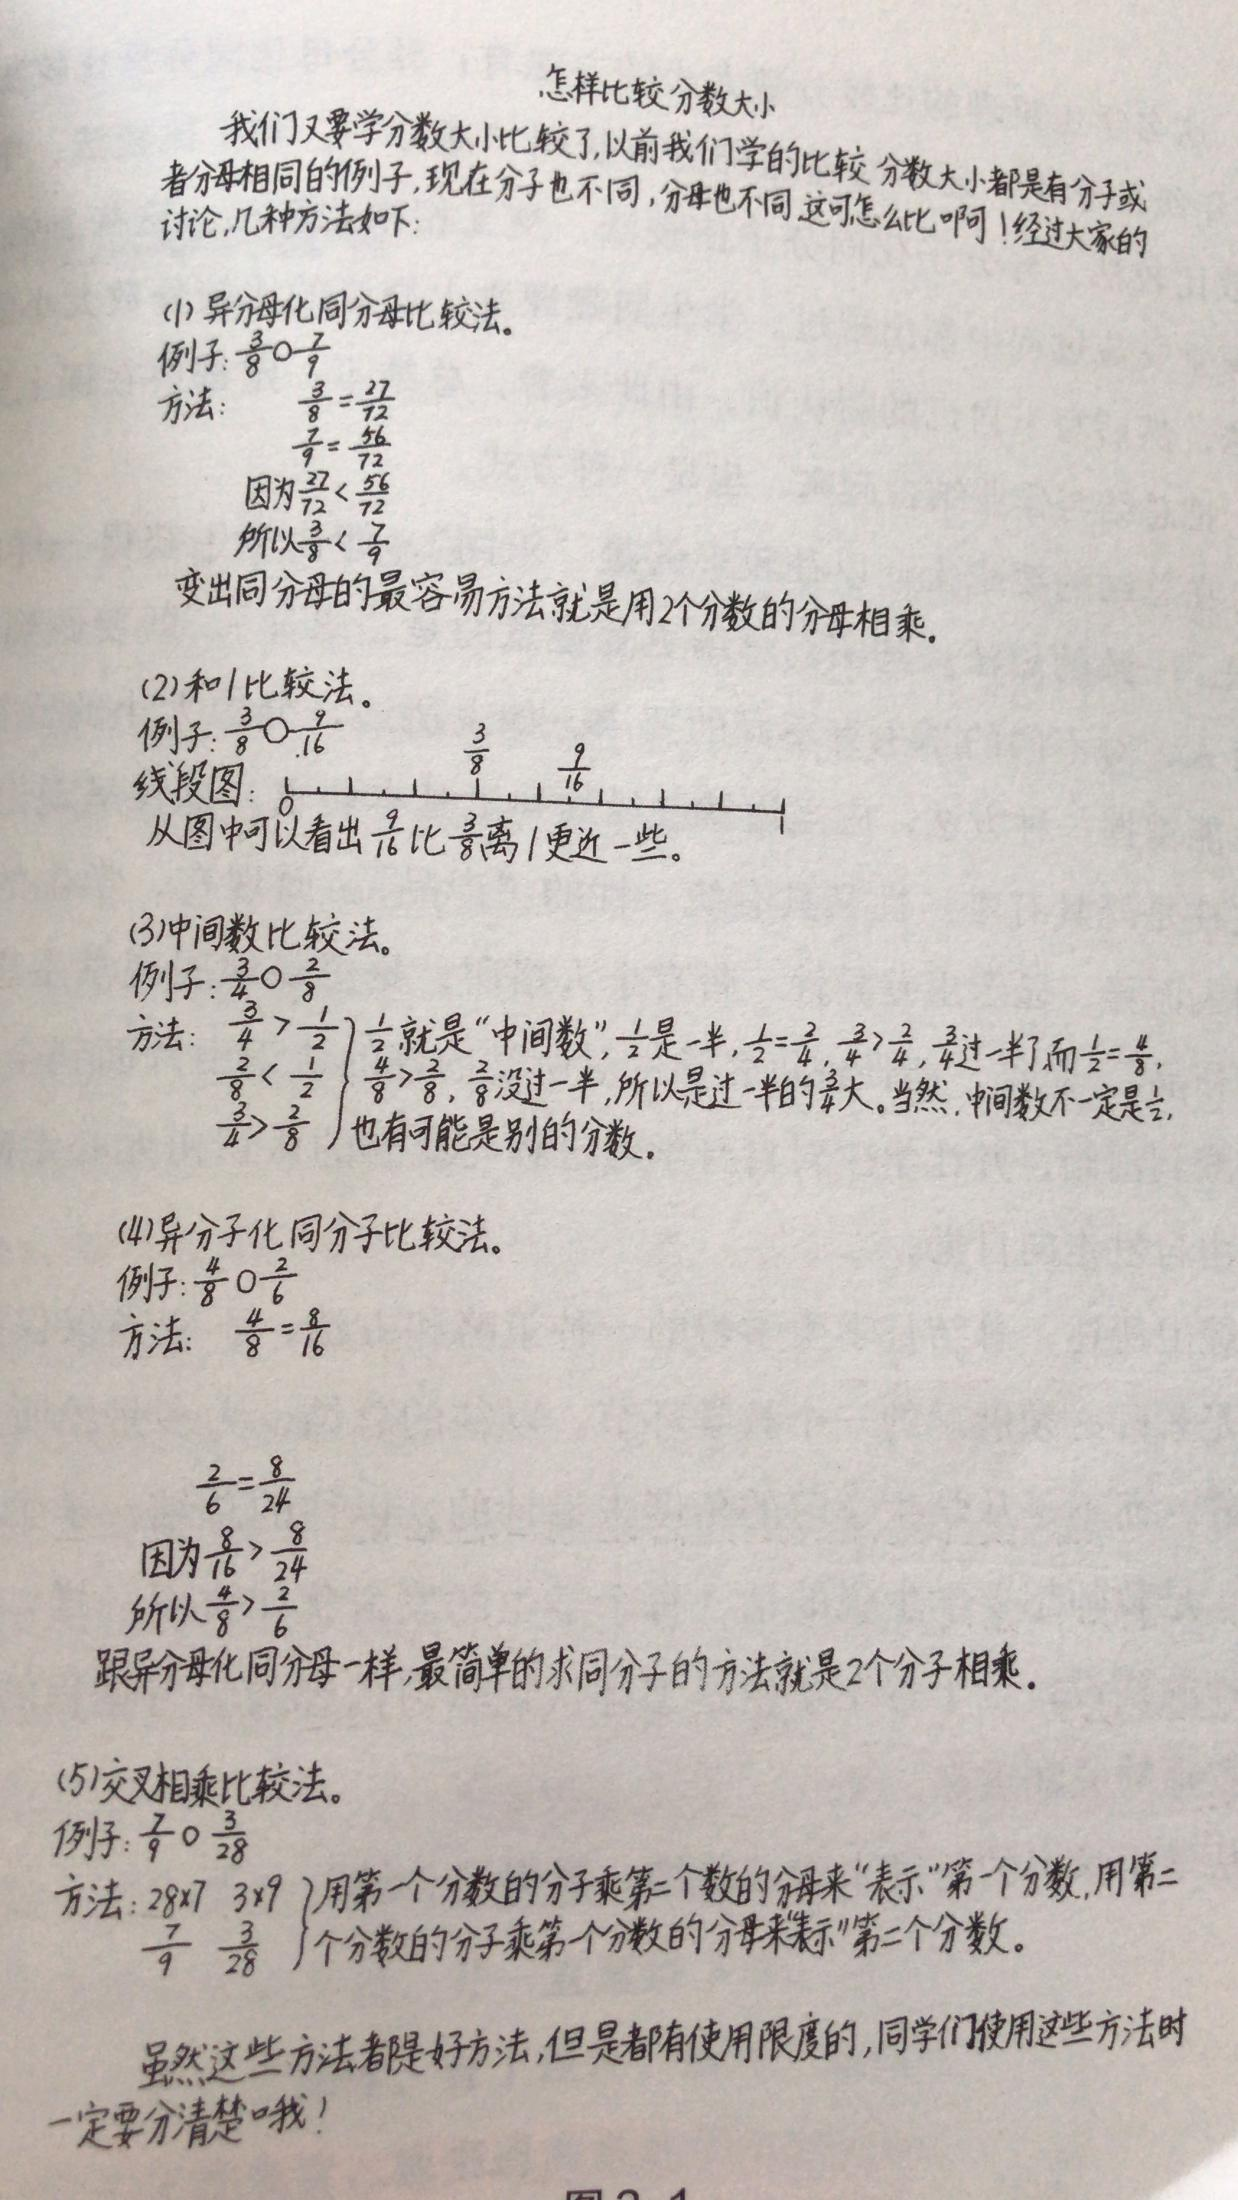 怎样比较分数大小
我们又要学分数大小比较了,以前我们学的比较分数大小都是有分子或
者分母相同的例子,现在分子也不同,分母也不同,这可怎么比啊!经过大家的
讨论,几种方法如下:
(1)异分母化同分母比较法。
例子: 3/8 ○ 7/9
方法: 3/8 = 27/72
7/9 = 56/72
因为 27/72 < 56/72
所以 3/8 < 7/9
变出同分母的最容易方法就是用2个分数的分母相乘.
(2)和1比较法。
例子: 3/8 ○ 9/16
3/8 9/16
线段图: 0 1
从图中可以看出 9/16 比 3/8 离1更近一些。
(3)中间数比较法。
例子: 3/4 ○ 2/8
方法: 3/4 > 1/2 } 1/2 就是“中间数”, 1/2 是一半, 1/2 = 2/4, 3/4 > 2/4, 3/4 过一半了,而 1/2 = 4/8,
2/8 < 1/2 } 4/8 > 2/8, 2/8 没过一半,所以是过一半的 3/4 大。当然,中间数不一定是 1/2,
3/4 > 2/8 } 也有可能是别的分数.
(4)异分子化同分子比较法。
例子: 4/8 ○ 2/6
方法: 4/8 = 8/16
2/6 = 8/24
因为 8/16 > 8/24
所以 4/8 > 2/6
跟异分母化同分母一样,最简单的求同分子的方法就是2个分子相乘.
(5)交叉相乘比较法。
例子: 7/9 ○ 3/28
方法: 28×7 3×9 } 用第一个分数的分子乘第二个数的分母来“表示”第一个分数,用第二
7/9 3/28 } 个分数的分子乘第一个分数的分母来“表示”第二个分数。
虽然这些方法都是好方法,但是都有使用限度的,同学们使用这些方法时
一定要分清楚哦!